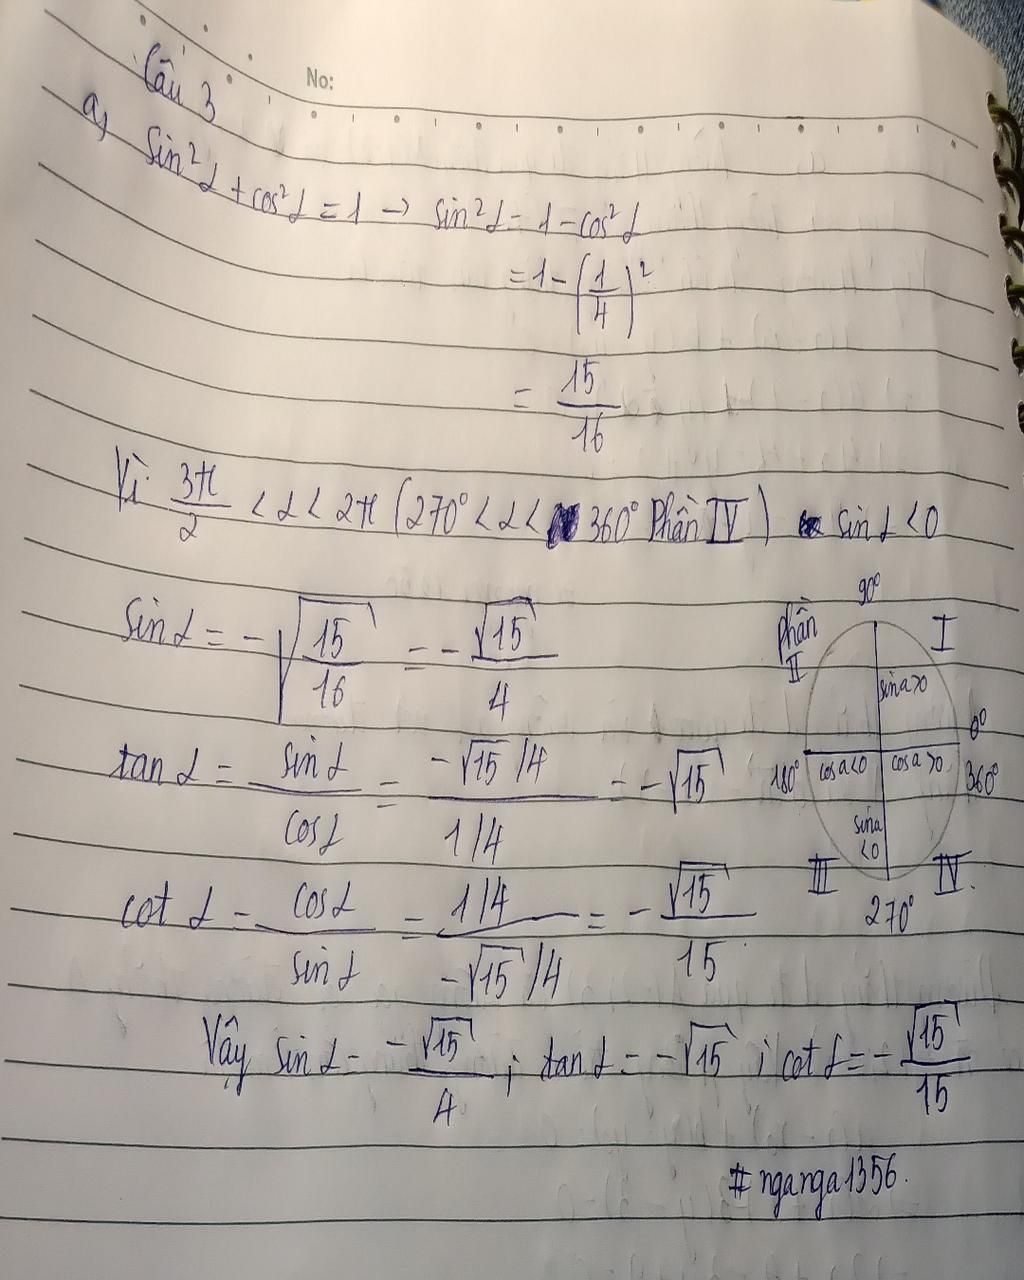 No:
Câu 3
a,
Sin²α + cos²α = 1 → sin²α = 1 - cos²α
= 1 - (1/4)²
= 15/16
Vì 3π/2 < α < 2π (270° < α < 360° Phần IV) sin α < 0
Sin α = - √(15/16) = - √15/4
tan α = sin α/cos α = (-√15/4)/(1/4) = - √15
cot α = cos α/sin α = (1/4)/(-√15/4) = - √15/15
90°
Phần II
I
sin a > 0
0°
180°
cos a < 0
cos a > 0
360°
sin a < 0
III
IV
270°
Vậy sin α = - √15/4 ; tan α = - √15 ; cot α = - √15/15
# nganga1356.